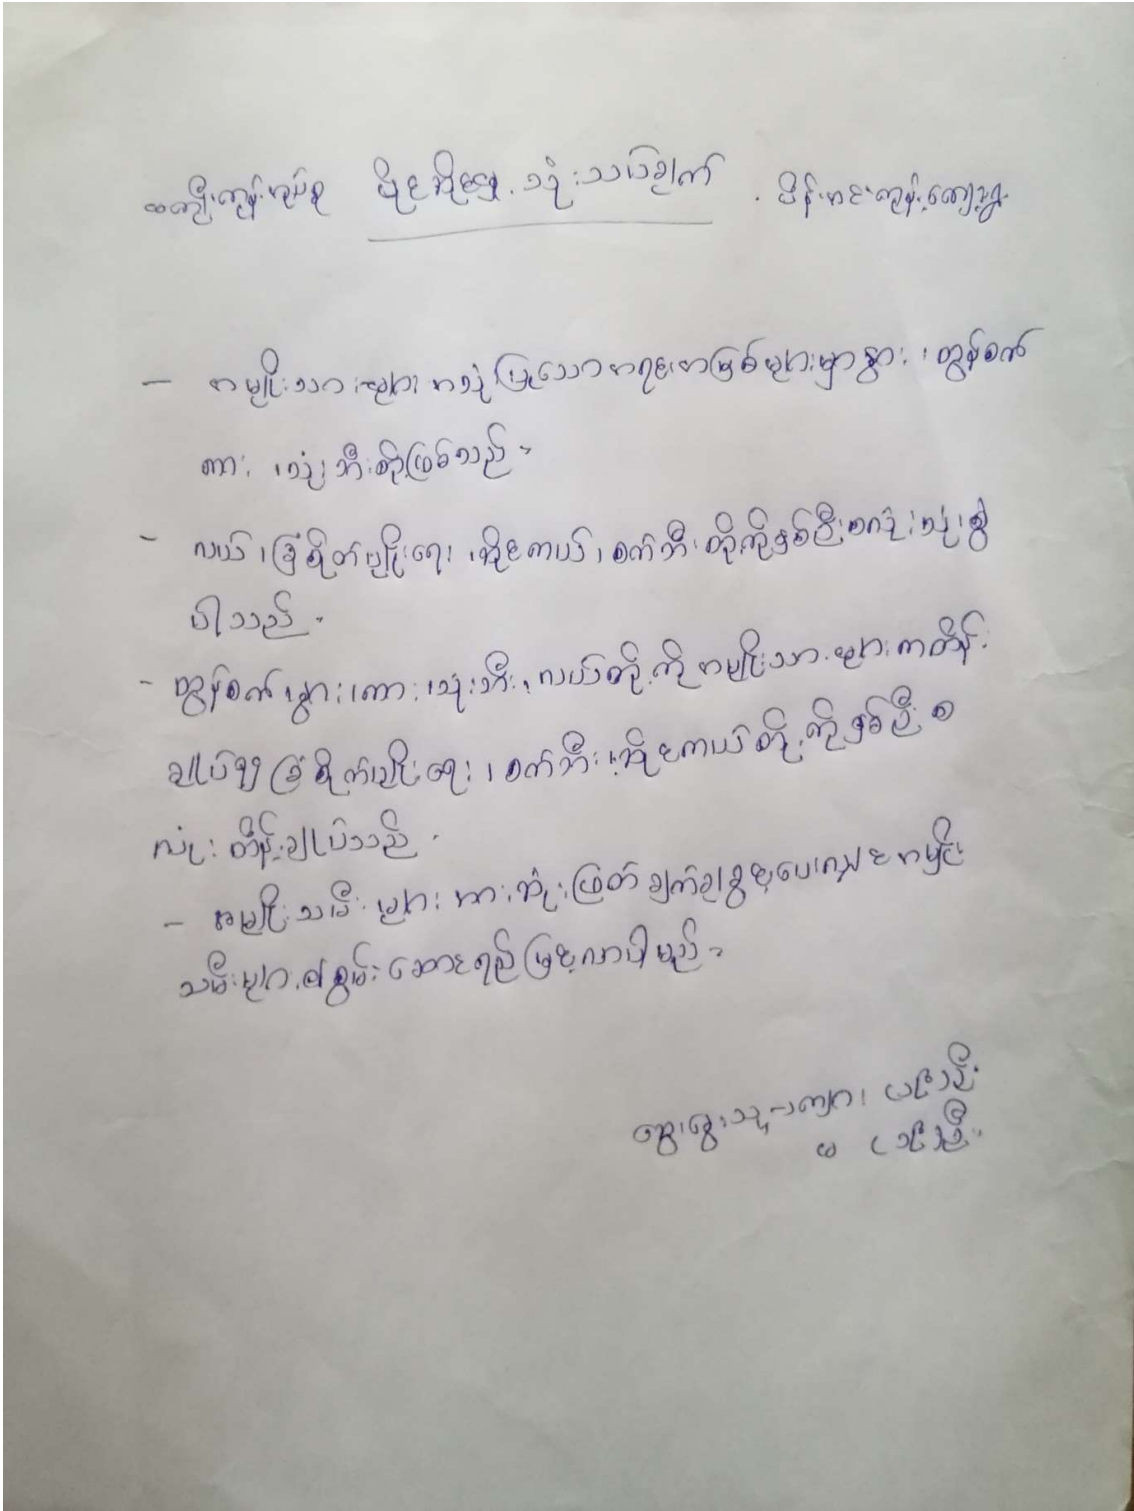 ထကြိုးကုန်းအုပ်စု ပိုင်ဆိုင်မှု့သုံးသပ်ချက် . ပိန်းအင်းကုန်းကျေးရွာ
- အမျိုးသားများအသုံးပြုသောအရင်းအမြစ်များမှာနွား ၊ ထွန်စက်
ကား ၊ သုံးဘီးတို့ဖြစ်သည်။
- လယ် ၊ ခြံစိုက်ပျိုးရေး ၊ ဆိုင်ကယ် ၊ စက်ဘီးတို့ကိုနှစ်ဦးစလုံးသုံးစွဲ
ပါသည်။
- ထွန်စက် ၊ နွား ၊ ကား ၊ သုံးဘီး ၊ လယ်တို့ကိုအမျိုးသားများကထိန်း
ချုပ်၍ ခြံစိုက်ပျိုးရေး ၊ စက်ဘီး ၊ ဆိုင်ကယ်တို့ကိုနှစ်ဦးစ
လုံးထိန်းချုပ်သည်။
- အမျိုးသမီးများအားဆုံးဖြတ်ချက်ချခွင့်ပေးလျှင်အမျိုး
သမီးများ၏စွမ်းဆောင်ရည်မြင့်လာပါမည်။
ဆွေးနွေးသူ - ကျား
မ